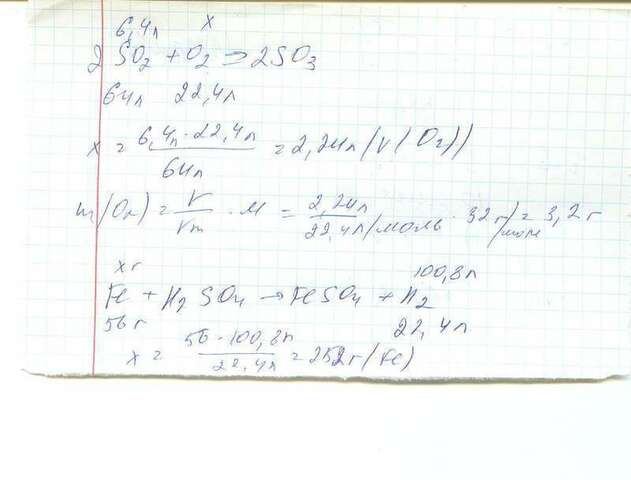 6,4л x
2SO2 + O2 → 2SO3
64л 22,4л
x = 6,4л · 22,4л / 64л = 2,24л (V(O2))
m(O2) = V / Vm · M = 2,24л / 22,4л/моль · 32 г/моль = 3,2 г
x г 100,8л
Fe + H2SO4 → FeSO4 + H2
56 г 22,4л
x = 56 · 100,8л / 22,4л = 252 г (Fe)